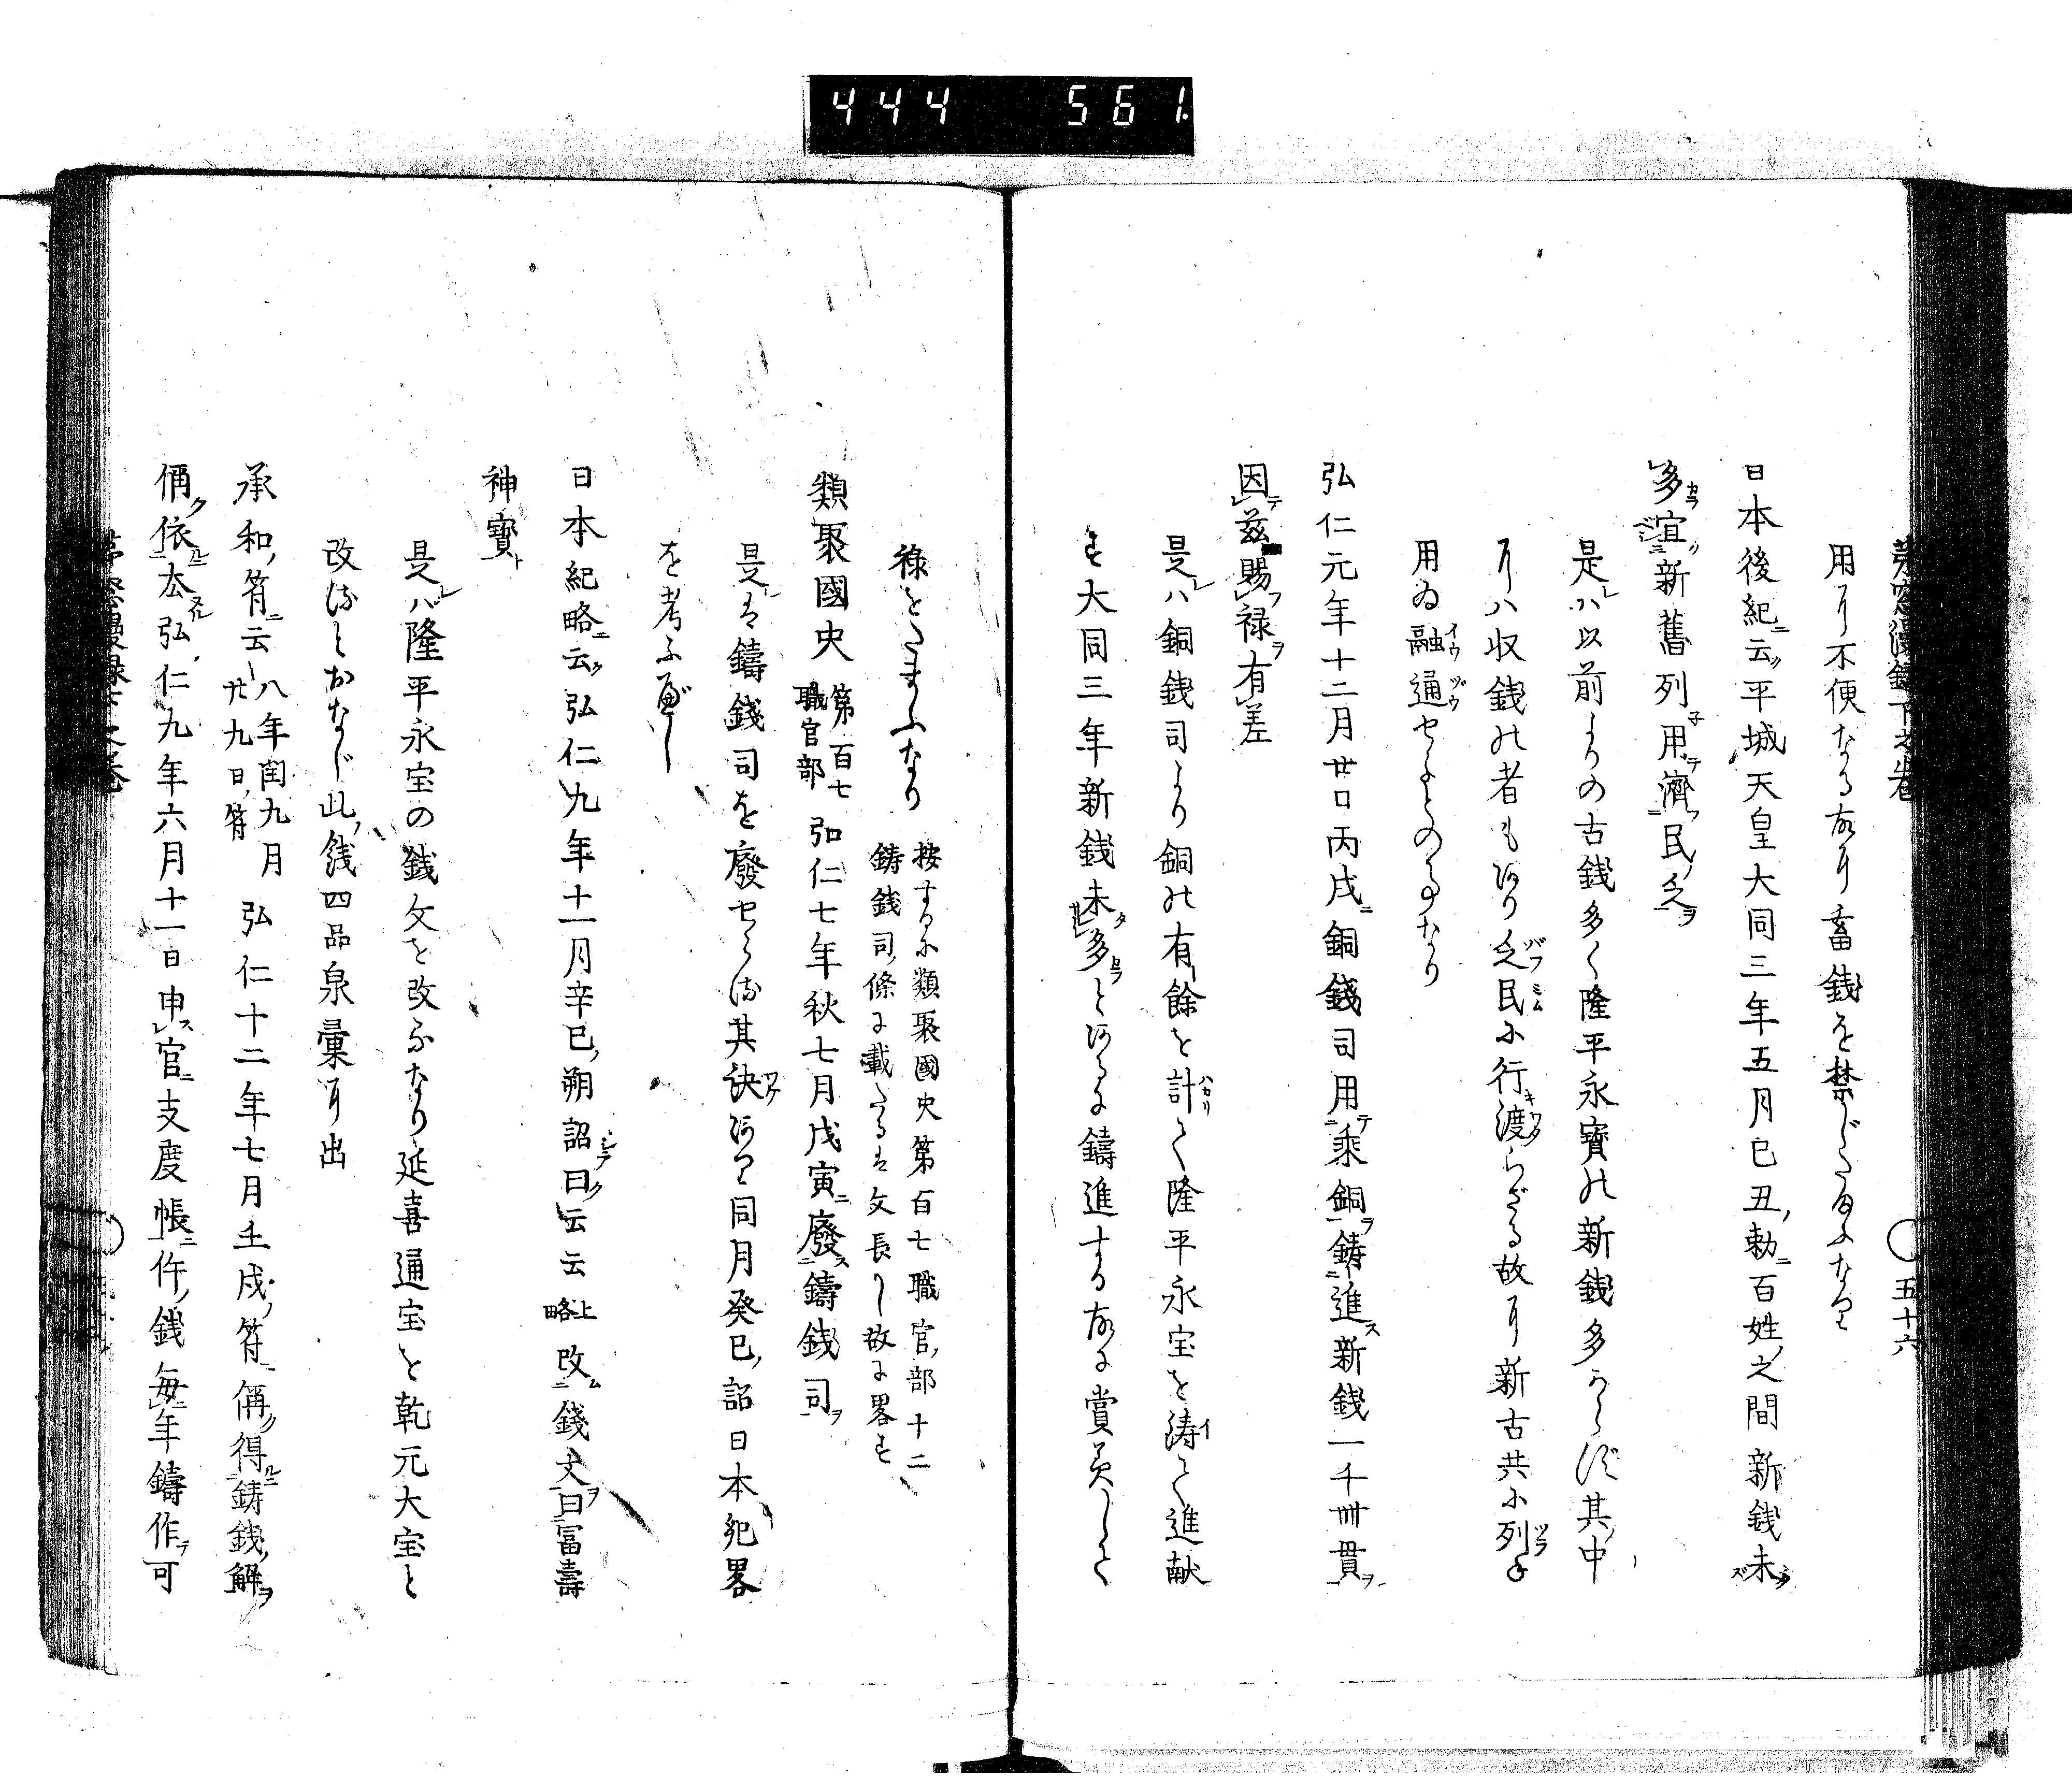 444 561.
用る不便なる故に畜銭を禁じたまふなり
日本後紀ニ云ク平城天皇大同三年五月己丑勅ニ百姓之間新銭未
多カラ宜シク新舊列子用テ濟フ民乏ヲ
是レハ以前よりの古銭多く隆平永寳の新銭多からず其中
には収銭の者もあり乏民に行渡らざる故に新古共に列子
用ゐ融通せよとの事なり
弘仁元年十二月廿口丙戌ニ銅錢司用テ乘銅ヲ鋳進ス新銭一千卌貫ヲ
因テ茲賜フ禄ヲ有差
是レハ銅銭司より銅の有餘を計て隆平永宝を涛イて進献
す大同三年新銭未タ多カラとあるに鑄進する故に賞美して
禄をたまふなり 按するに類聚國史第百七職官部十二
鋳銭司條に載たるは文長し故に畧す
類聚國史 第百七
職官部 弘仁七年秋七月戊寅ニ廢ス鑄銭司ヲ
是レは鑄錢司を廢せらる其訣あり同月癸巳詔日本紀畧
を考ふべし
日本紀略ニ云ク弘仁九年十一月辛巳朔詔シテ曰ク云云 上略 改ム錢文ヲ曰冨壽
神寳ト
是レハ隆平永宝の銭文を改るなり延喜通宝を乾元大宝と
改るとおなじ此銭四品泉彙に出
承和符ニ云 八年閏九月
廿九日符 弘仁十二年七月壬戌符ニ偁ク得ルニ鋳銭解ヲ
偁ク依ルニ去ル弘仁九年六月十一日申ス官ニ支度帳ニ件銭毎年鑄作テ可
五十六